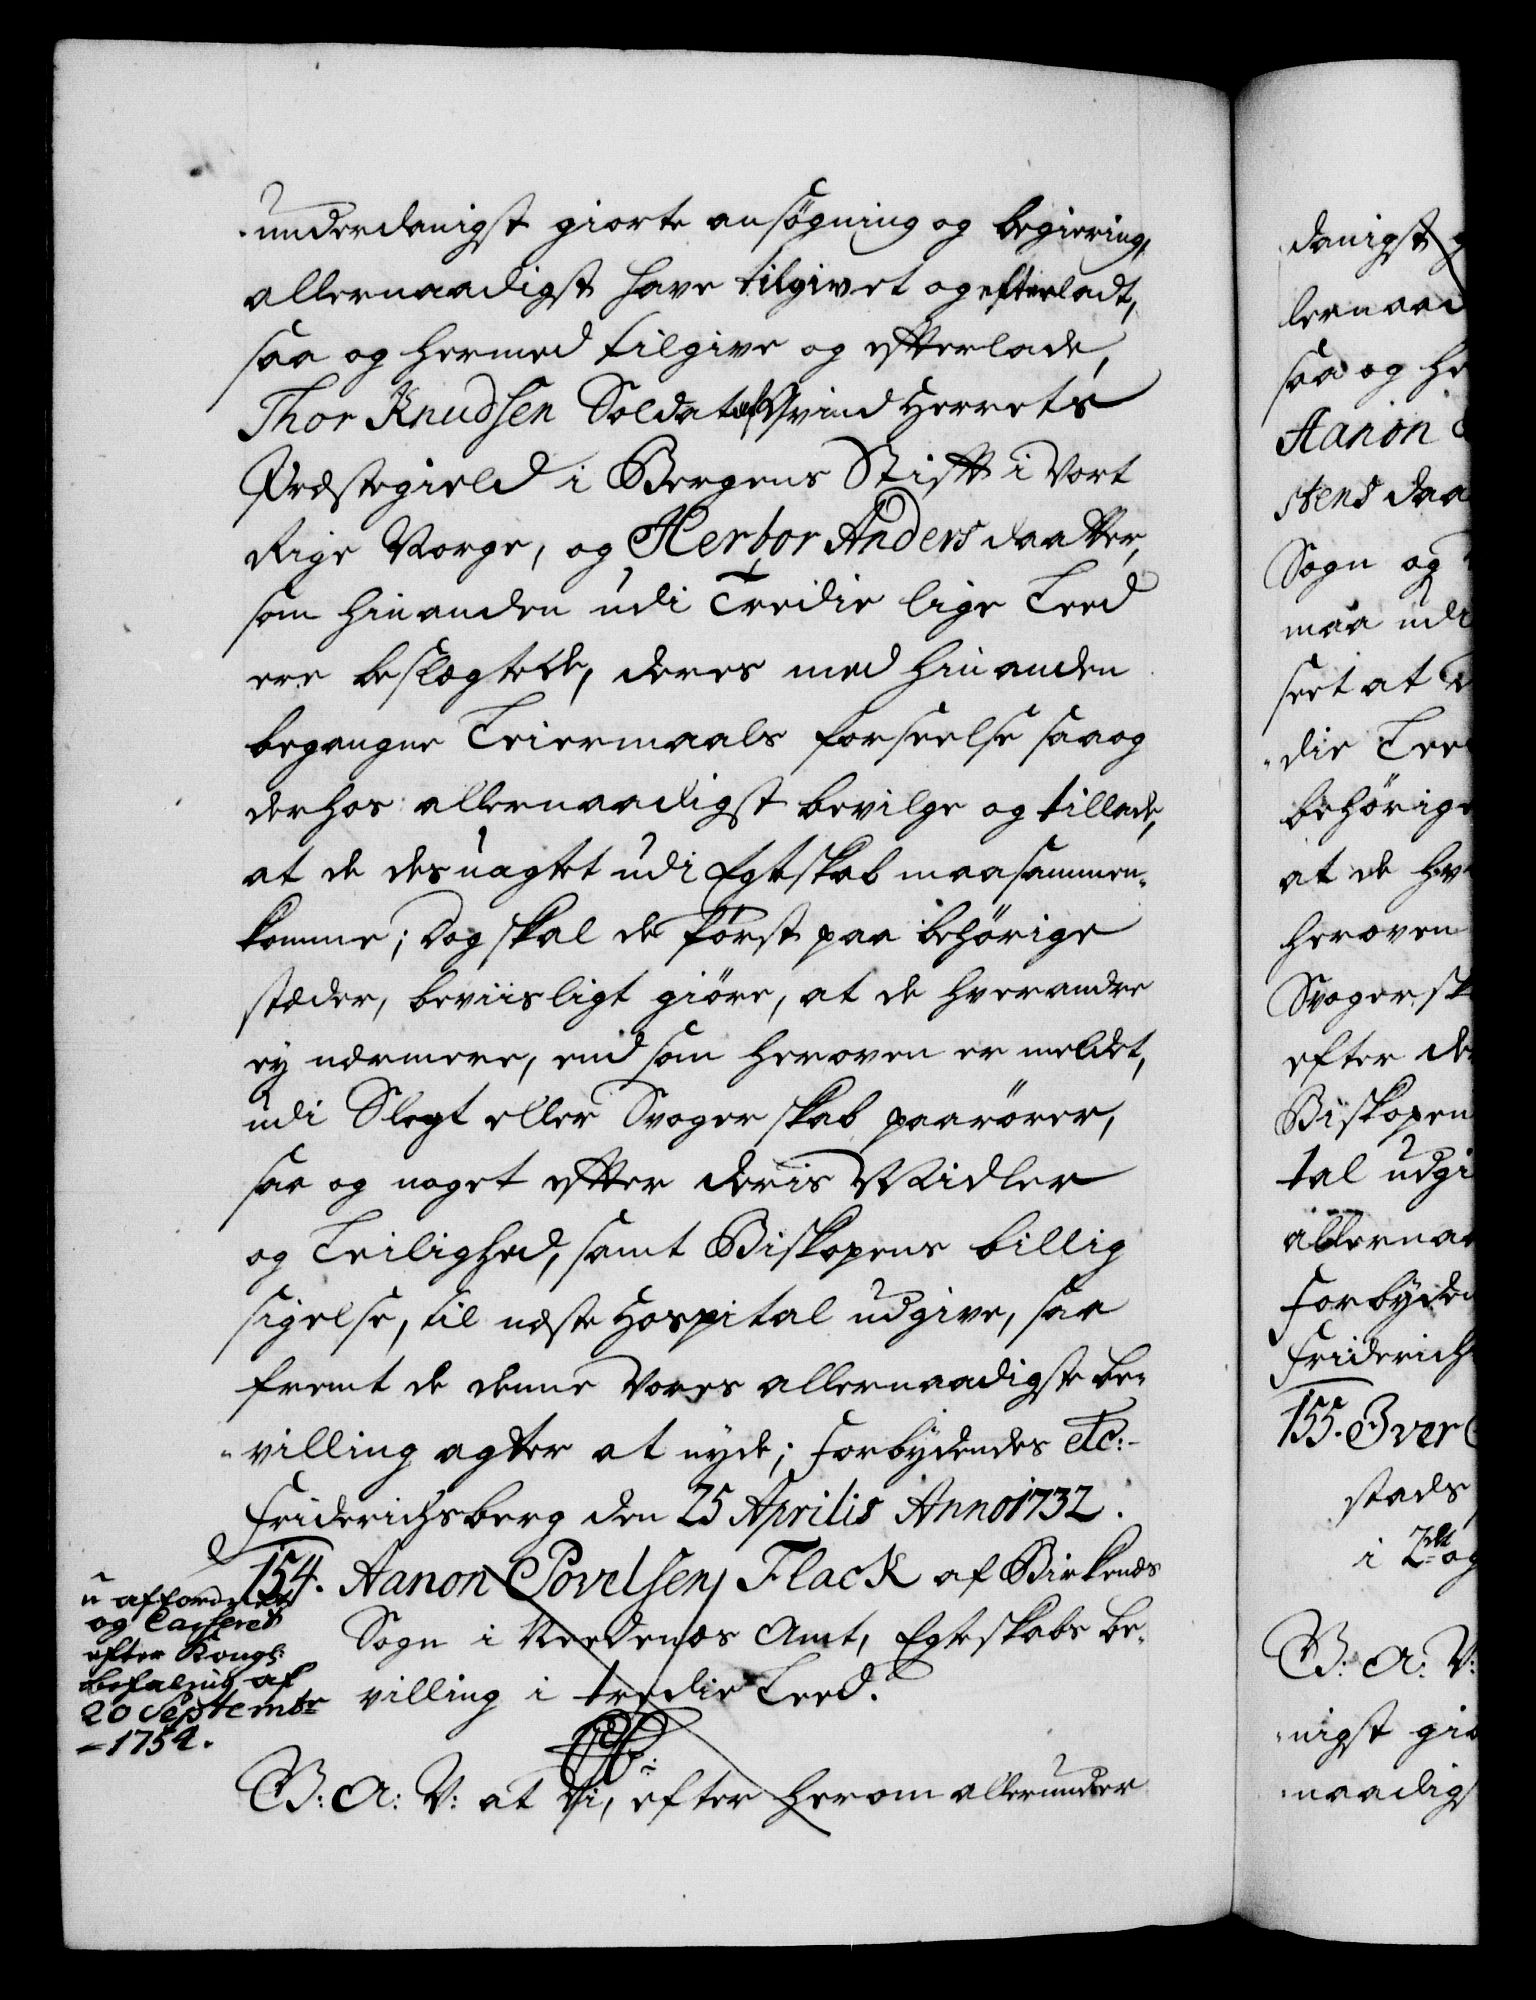 underdanigst giorte ansøgning og begiering,
allernaadigst have tilgivet og efterladt,
saa og hermed tilgive og efterlade,
Thor Knudsen Soldat af Qvind Herrets
Præstegield i Bergens Stift i Vort
Rige Norge, og Herbor Anders daatter,
som hinanden udi Tredie lige Leed
ere beslegtede, deres med hinanden
begangne Leiermaals forseelse saa og
derhos allernaadigst bevilge og tillade,
at de des uagtet udi Egteskab maa sammen-
komme; Dog skal de først paa behørige
stæder, beviisligt giøre, at de hverandre
ey nærmere, end som heroven er meldet,
udi Slegt eller Svogerskab paarører,
saa og noget efter deris Midler
og Leilighed, samt Biskopens billig
sigelse, til næste Hospital udgive, saa
fremt de denne Vores allernaadigste be-
villing agter at nyde; Forbydendes etc:
Friderichsberg den 25 Aprilis Anno 1732.
154. Aanon Povelsen Flack af Birkenæs
Sogn i Nedenæs Amt, Egteskabs be-
villing i tredie Leed.
u affordret
og Casseret
efter Kongl:
befaling af
20 Septembr
1754.
G: A: V: at Vi, efter herom allerunder
danigst g
lernaad
saa og he
Aanon
stens daa
Sogn og
maa udi
seet at
die Lee
behørige
at de hv
heroven
Svogersk
efter de
Biskopen
tal udgi
allernaa
Forbyden
Friderich
155. Iver
stads
i 2det og
G: A: V:
nigst gio
naadigs